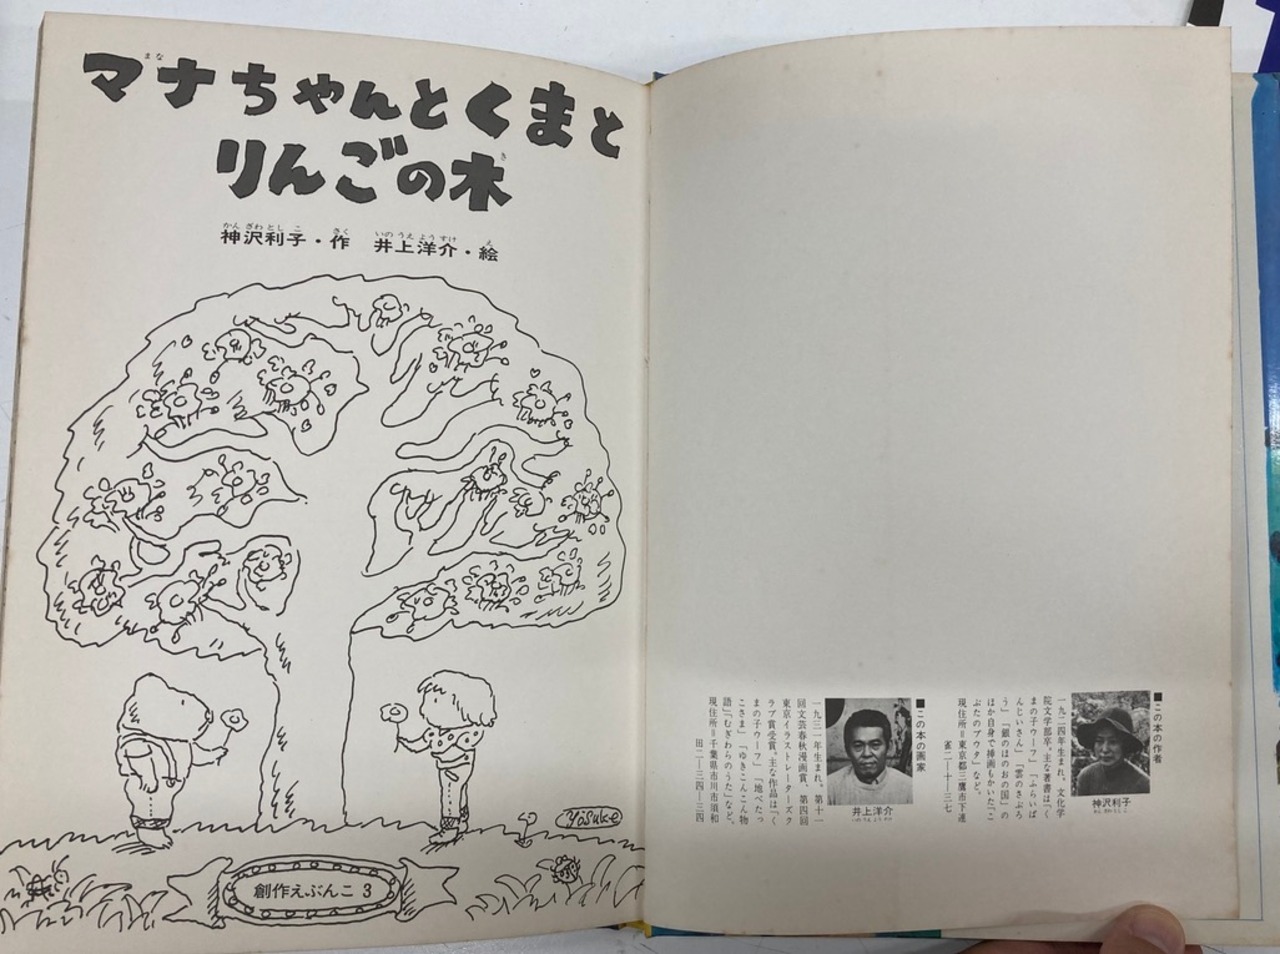 マナちゃんとくまと
まな
りんごの木
き
神沢利子・作 井上洋介・絵
かんざわとしこ さく いのうえようすけ え
Yosuke
創作えぶんこ 3
■この本の作者
神沢利子
かんざわとしこ
一九二四年生まれ。文化学
院文学部卒。主な著書は「く
まの子ウーフ」「ふらいぱ
んじいさん」「雲のさぶろ
う」「銀のほのおの国」の
ほか自身で挿画もかいた「こ
ぶたのブウタ」など。
現住所＝東京都三鷹市下連
雀二—十—三七
■この本の画家
井上洋介
いのうえようすけ
一九三一年生まれ。第十一
回文芸春秋漫画賞、第四回
東京イラストレーターズク
ラブ賞受賞。主な作品は「く
まの子ウーフ」「地べたっ
こさま」「ゆきこんこん物
語」「むぎわらのうた」など。
現住所＝千葉県市川市須和
田二—三四—三四